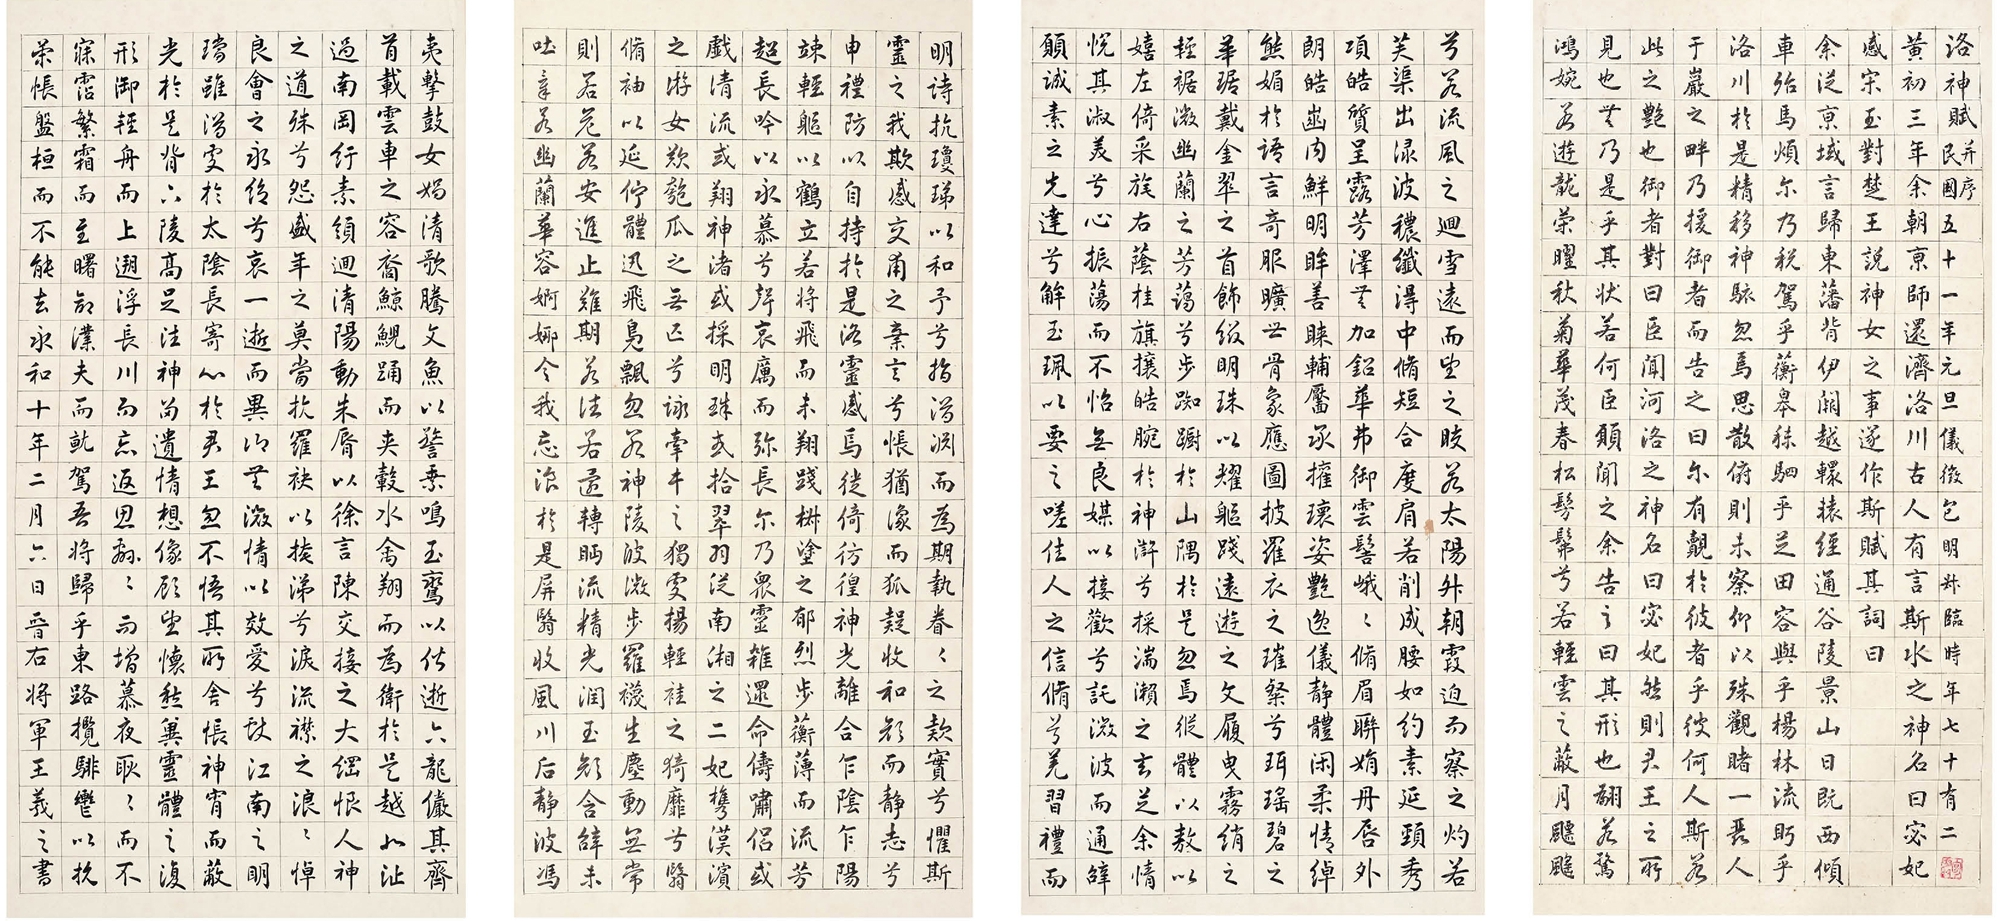 洛神賦并序 民國五十一年元旦儀徵包明叔臨時年七十有二
黃初三年余朝京師還濟洛川古人有言斯水之神名曰宓妃
感宋玉對楚王說神女之事遂作斯賦其詞曰
余從京域言歸東藩背伊闕越轘轅經通谷陵景山日既西傾
車殆馬煩尔乃稅駕乎蘅皋秣駟乎芝田容與乎楊林流眄乎
洛川於是精移神駭忽焉思散俯則未察仰以殊觀睹一麗人
于巖之畔乃援御者而告之曰尔有覿於彼者乎彼何人斯若
此之艷也御者對曰臣聞河洛之神名曰宓妃然則君王之所
見也無乃是乎其狀若何臣願聞之余告之曰其形也翩若驚
鴻婉若遊龍榮曜秋菊華茂春松髣髴兮若輕雲之蔽月飄飖
兮若流風之迴雪遠而望之皎若太陽升朝霞迫而察之灼若
芙蕖出淥波穠纖得中脩短合度肩若削成腰如約素延頸秀
項皓質呈露芳澤無加鉛華弗御雲髻峨〻脩眉聯娟丹唇外
朗皓齒內鮮明眸善睞輔靨承權瓌姿艷逸儀靜體閑柔情綽
態媚於語言奇服曠世骨象應圖披羅衣之璀粲兮珥瑤碧之
華琚戴金翠之首飾綴明珠以耀軀踐遠遊之文履曳霧綃之
輕裾微幽蘭之芳藹兮步踟躕於山隅於是忽焉縱體以敖以
嬉左倚采旄右蔭桂旗攘皓腕於神滸兮採湍瀨之玄芝余情
悅其淑美兮心振蕩而不怡無良媒以接歡兮託微波而通辭
願誠素之先達兮解玉珮以要之嗟佳人之信脩兮羌習禮而
明詩抗瓊珶以和予兮指潛淵而為期執眷〻之款實兮懼斯
靈之我欺感交甫之棄言兮悵猶豫而狐疑收和顏而靜志兮
申禮防以自持於是洛靈感焉徙倚彷徨神光離合乍陰乍陽
竦輕軀以鶴立若將飛而未翔踐椒塗之郁烈步蘅薄而流芳
超長吟以永慕兮聲哀厲而弥長尔乃眾靈雜遝命儔嘯侶或
戲清流或翔神渚或採明珠或拾翠羽從南湘之二妃攜漢濱
之游女歎匏瓜之無匹兮詠牽牛之獨處揚輕袿之猗靡兮翳
脩袖以延佇體迅飛鳧飄忽若神陵波微步羅襪生塵動無常
則若危若安進止難期若往若還轉眄流精光潤玉顏含辭未
吐氣若幽蘭華容婀娜令我忘湌於是屏翳收風川后靜波馮
夷擊鼓女媧清歌騰文魚以警乘鳴玉鸞以偕逝六龍儼其齊
首載雲車之容裔鯨鯢踊而夾轂水禽翔而為衛於是越北沚
過南岡紆素領迴清陽動朱脣以徐言陳交接之大綱恨人神
之道殊兮怨盛年之莫當抗羅袂以掩涕兮淚流襟之浪〻悼
良會之永絕兮哀一逝而異鄉無微情以效愛兮獻江南之明
璫雖潛處於太陰長寄心於君王忽不悟其所舍悵神宵而蔽
光於是背下陵高足往神留遺情想像顧望懷愁冀靈體之復
形御輕舟而上遡浮長川而忘返思緜〻而增慕夜耿〻而不
寐霑繁霜而至曙命僕夫而就駕吾將歸乎東路攬騑轡以抗
策悵盤桓而不能去永和十年二月六日晉右將軍王羲之書